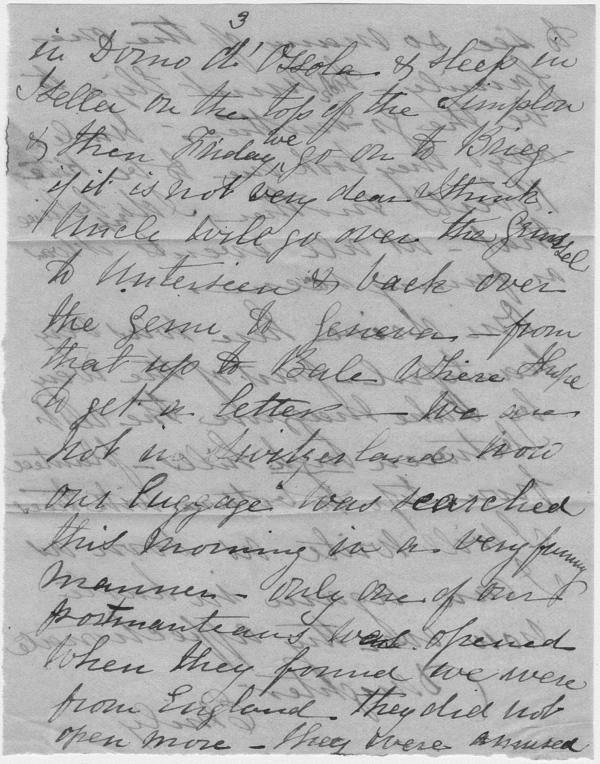 3
in Domo d'Ossola & sleep in
Isella on the top of the Simplon
& then Friday, we go on to Brieg
if it is not very dear I think
Uncle will go over the Grimsel
to Unterseen & back over
the Gemi to Geneva - from
that up to Bale where I hope
to get a letter - We are
not in Switzerland now
our luggage was searched
this morning in a very funny
manner - only one of our
portmanteaus was opened
when they found we were
from England - they did not
open more - they were amused